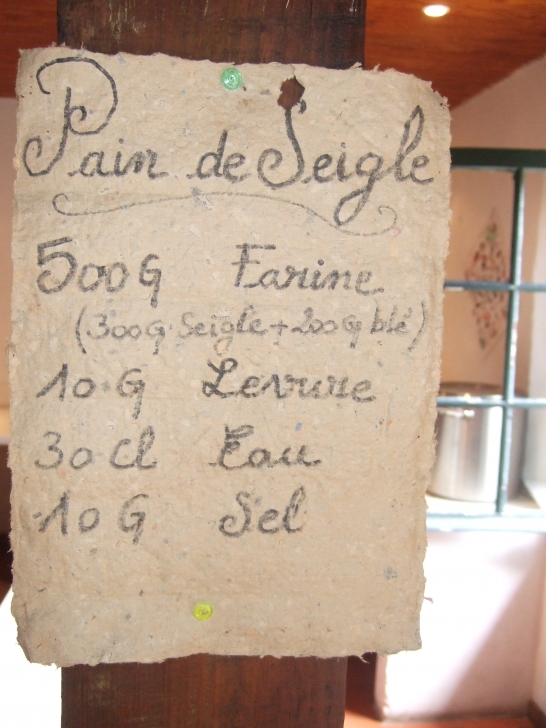 Pain de Seigle
500G Farine
(300G Seigle + 200G blé)
10 G Levure
30 Cl Eau
10 G Sel